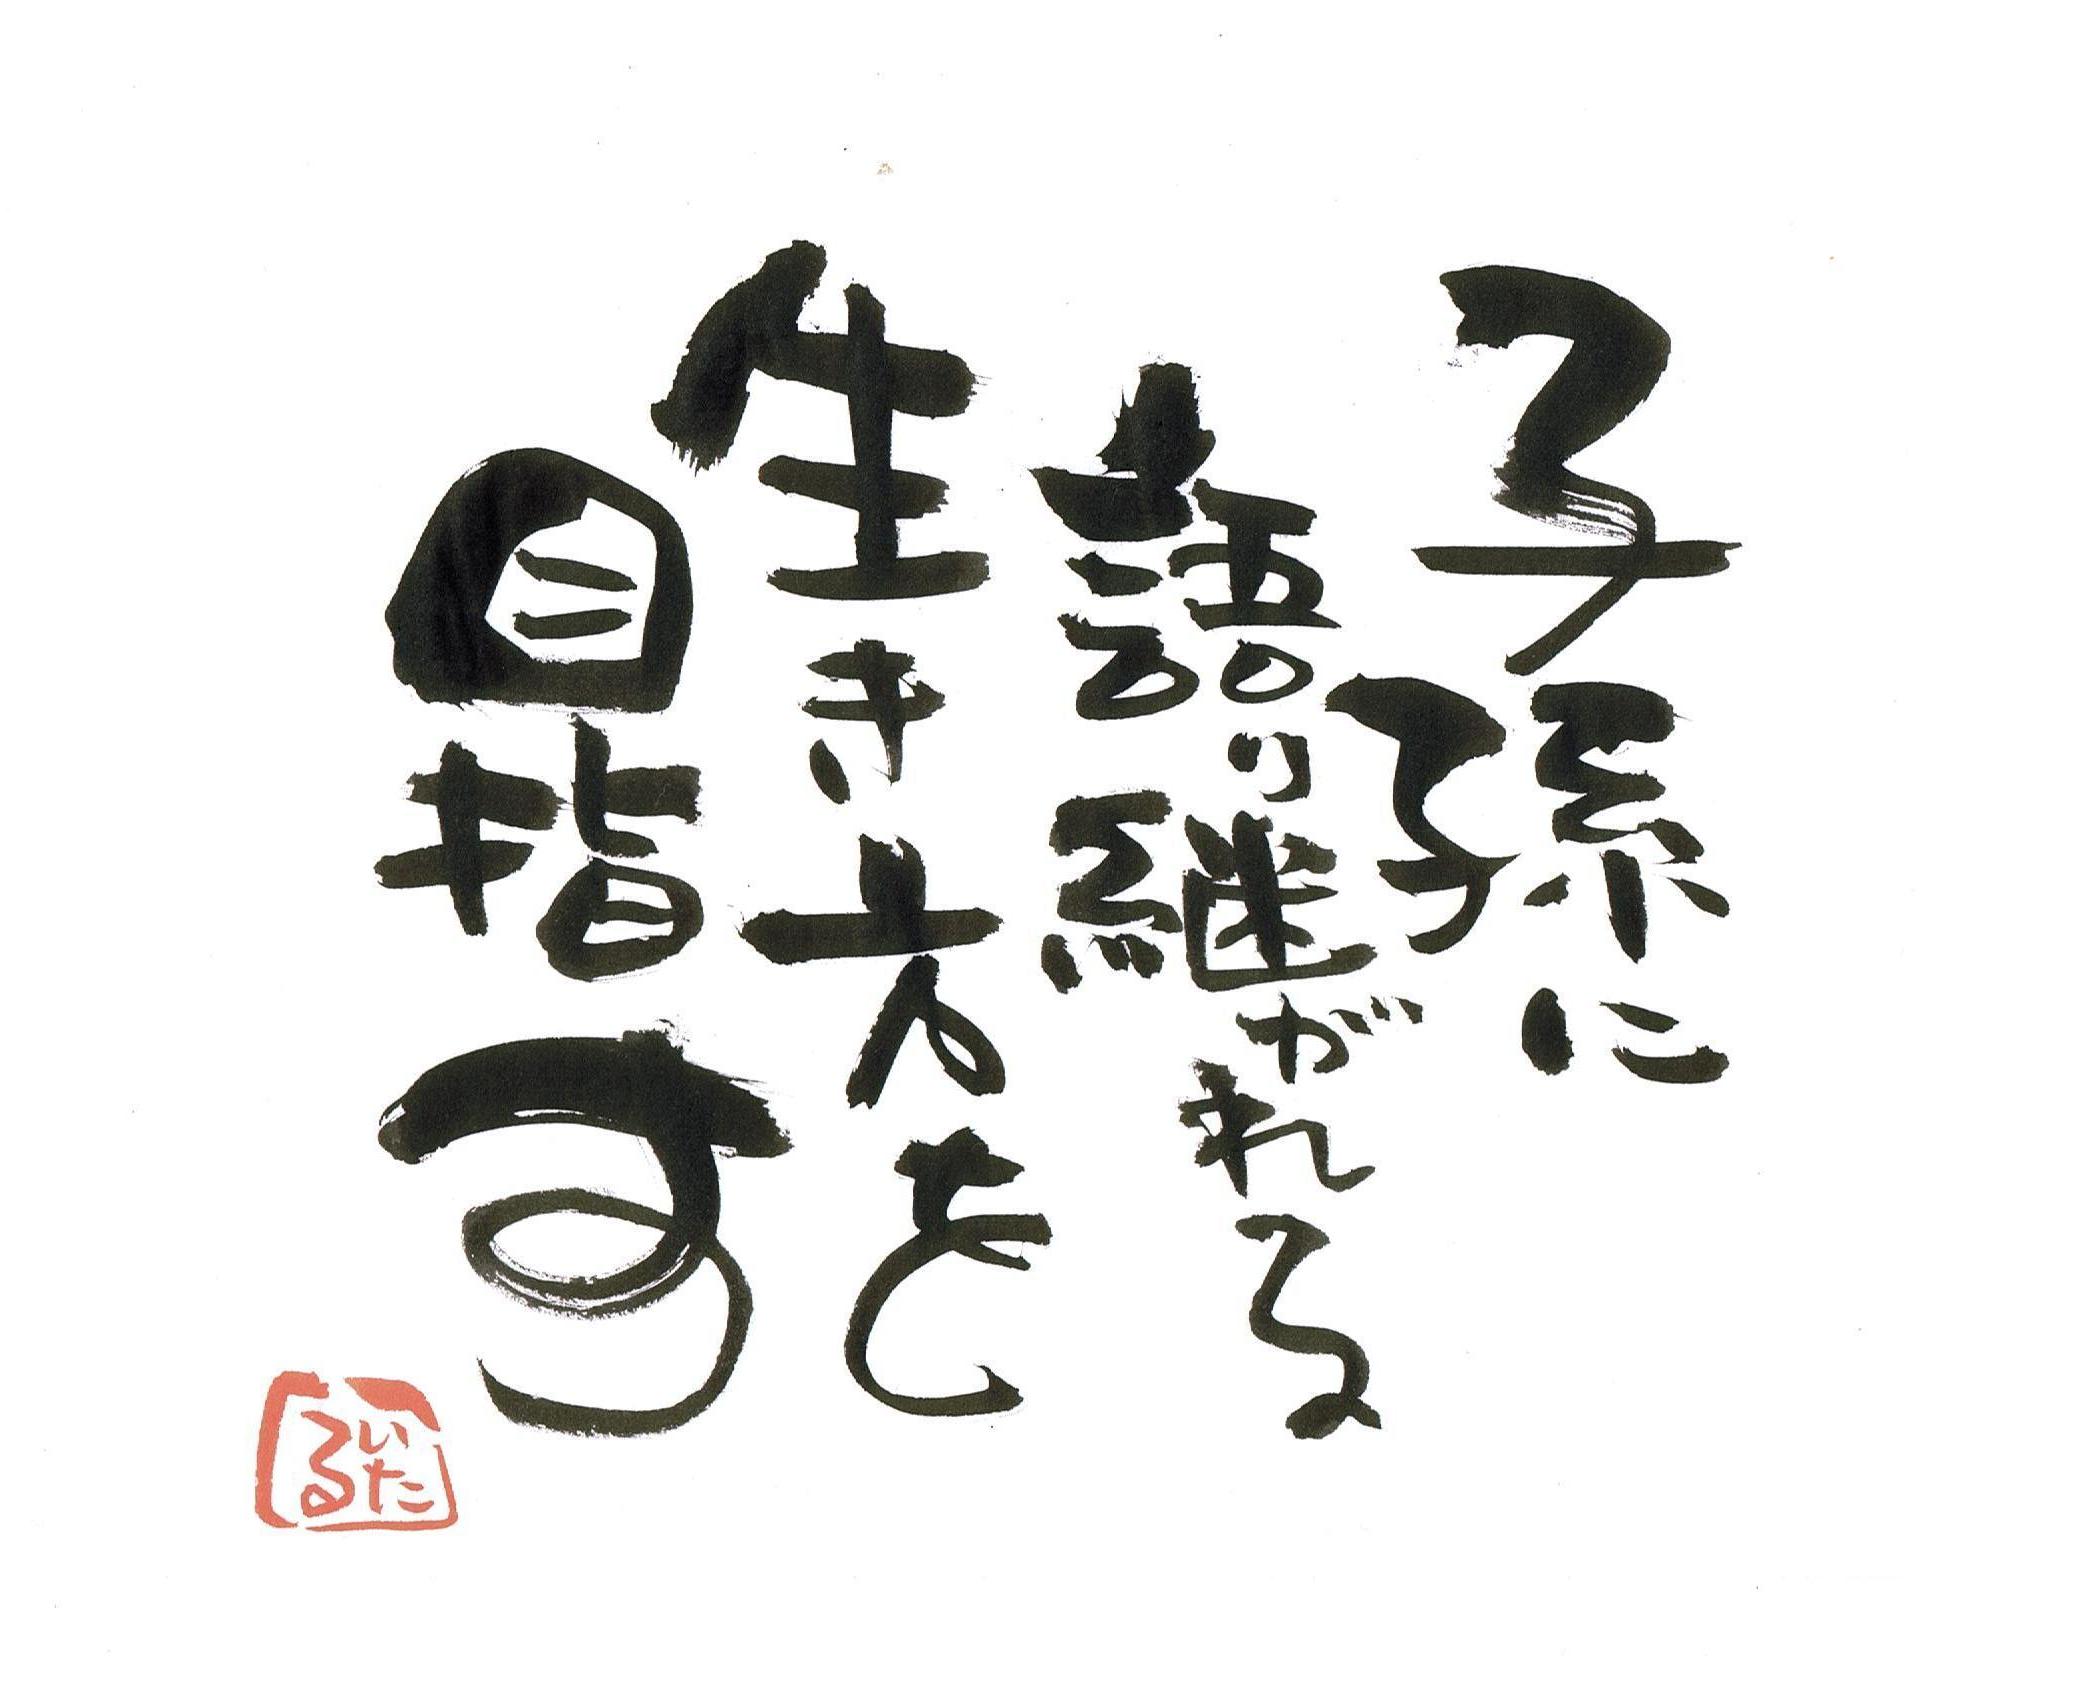 子孫に
語り継がれる
生き方を
目指す
いた
る